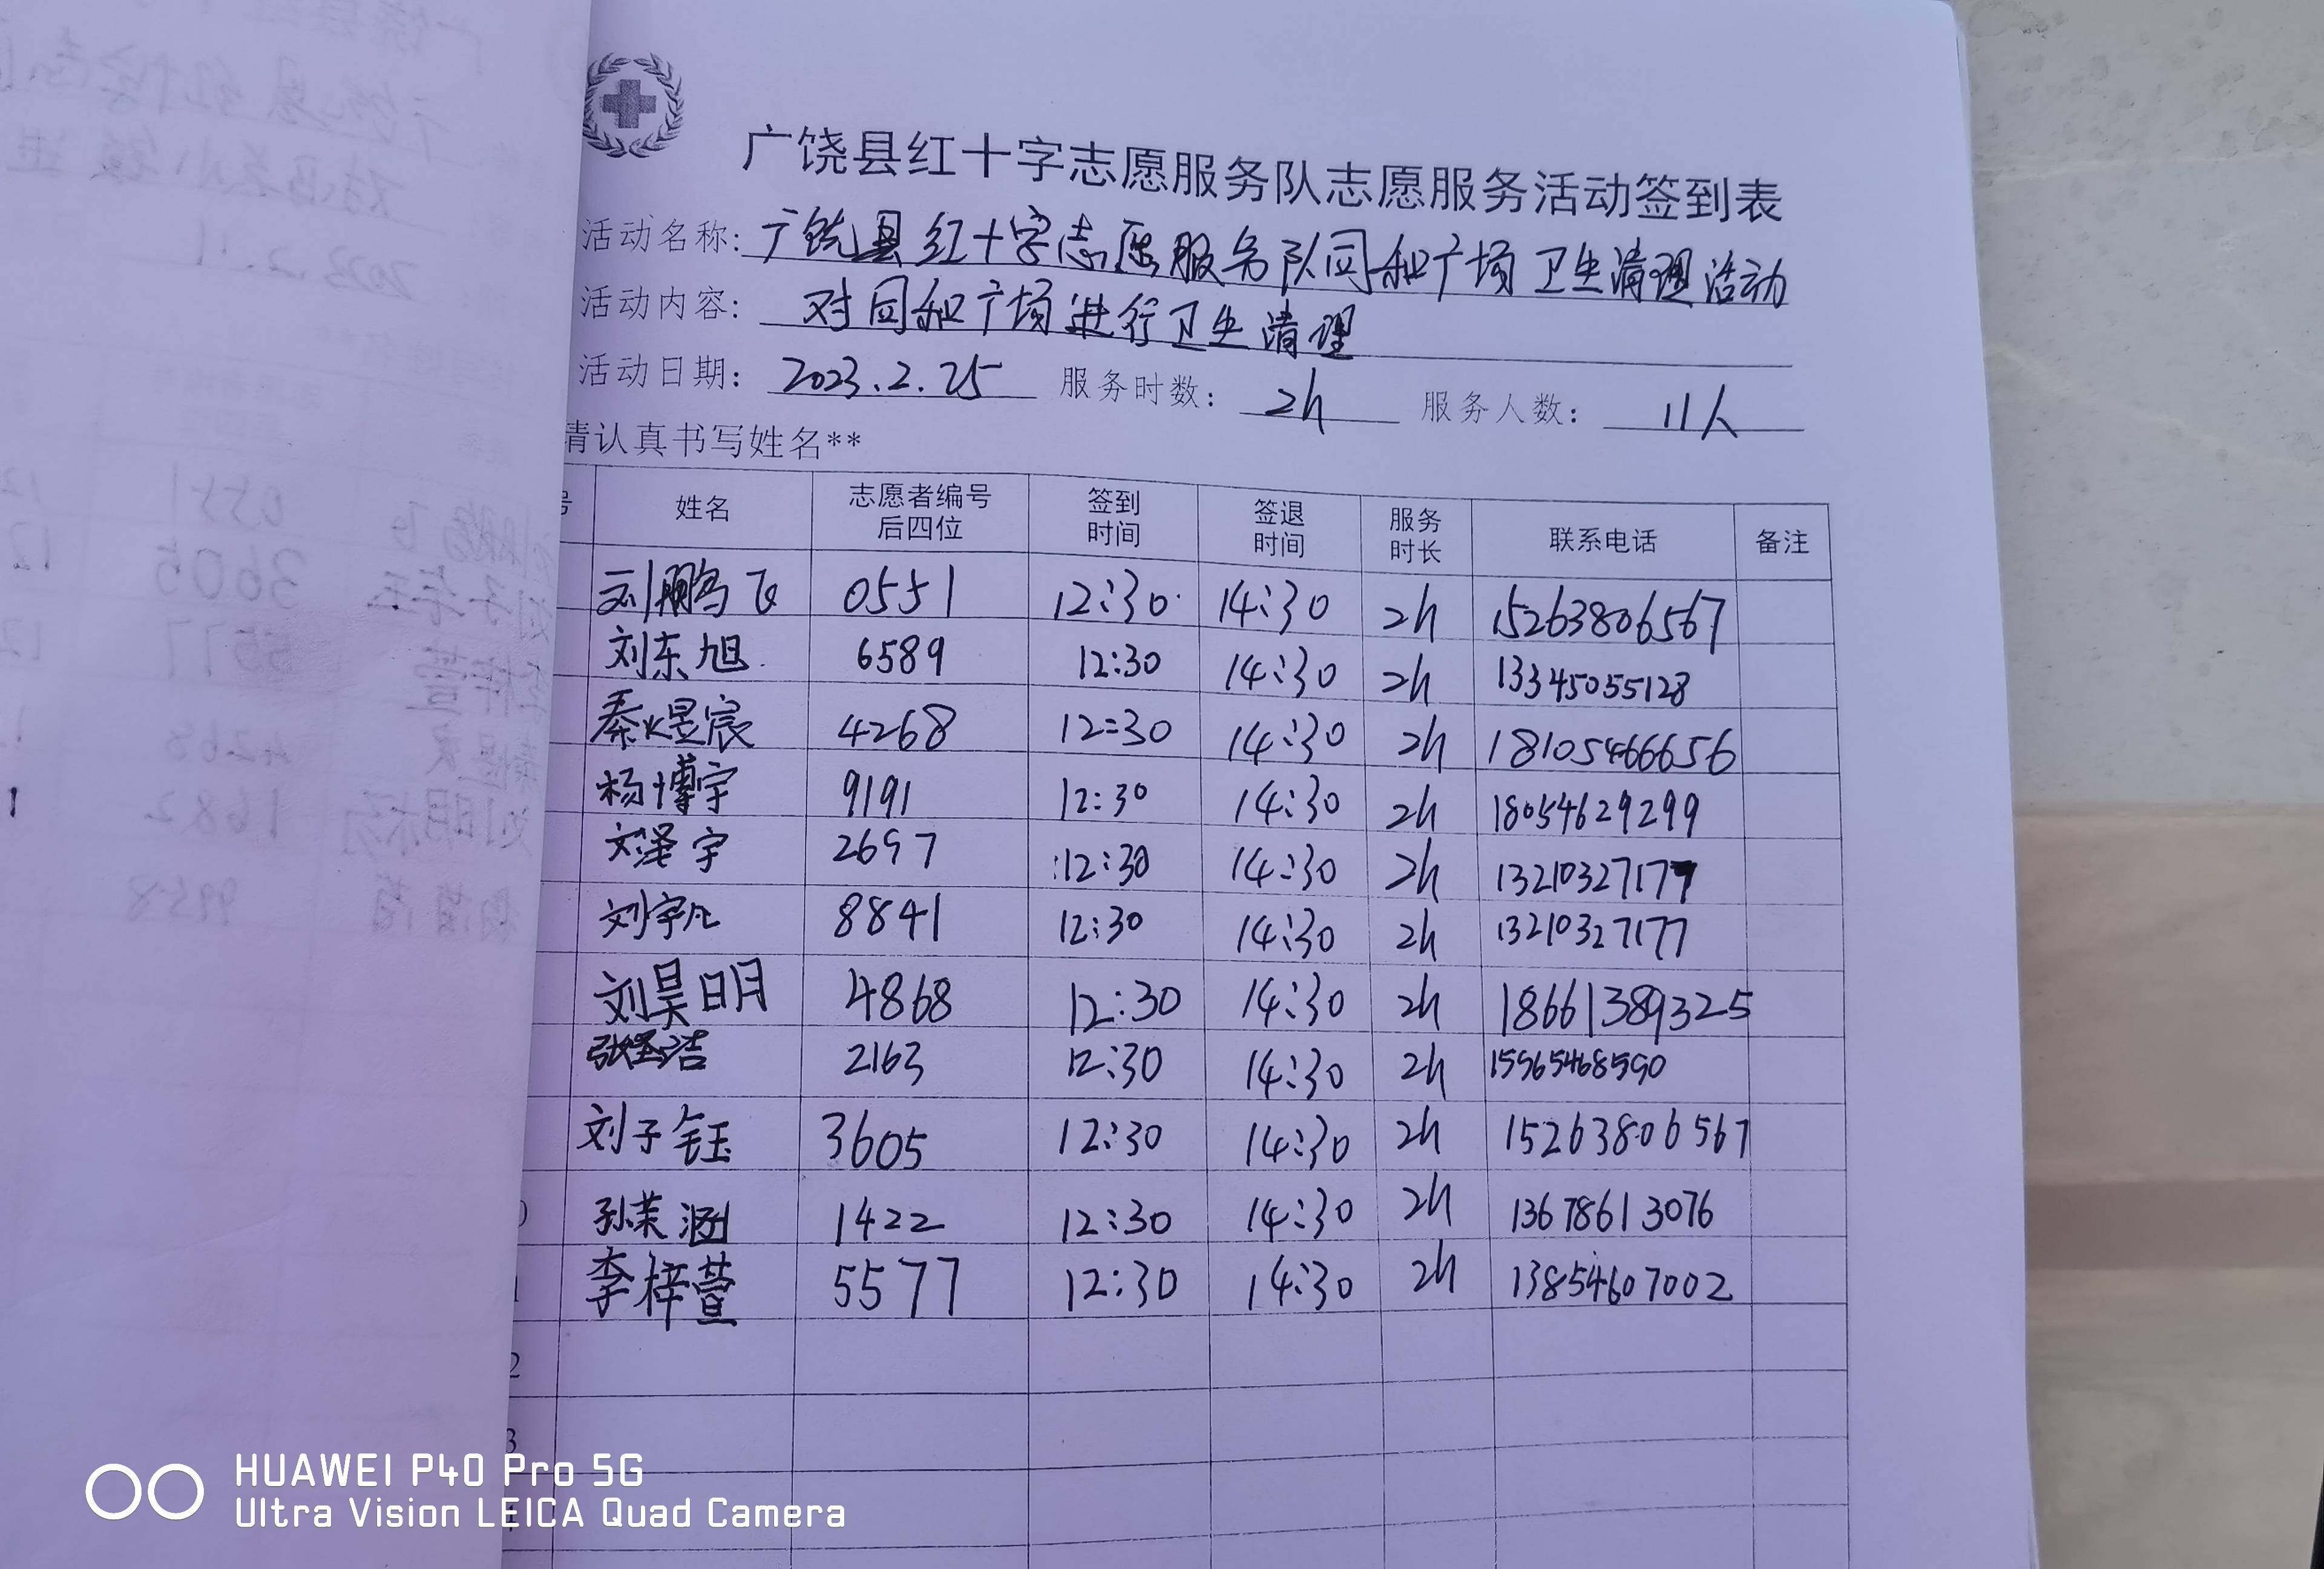 广饶县红十字志愿服务队志愿服务活动签到表
活动名称: 广饶县红十字志愿服务队同和广场卫生清理活动
活动内容: 对同和广场进行卫生清理
活动日期: 2023.2.25 服务时数: 2h 服务人数: 11人
请认真书写姓名**
号 姓名 志愿者编号后四位 签到时间 签退时间 服务时长 联系电话 备注
刘鹏飞 0551 12:30 14:30 2h 15263806567
刘东旭 6589 12:30 14:30 2h 13345055128
秦煜宸 4268 12:30 14:30 2h 18105466656
杨博宇 9191 12:30 14:30 2h 18054629299
刘泽宇 2697 12:30 14:30 2h 13210327177
刘宇凡 8841 12:30 14:30 2h 13210327177
刘昊明 4868 12:30 14:30 2h 18661389325
2163 12:30 14:30 2h 15965468590
刘子钰 3605 12:30 14:30 2h 15263806567
0 孙茉涵 1422 12:30 14:30 2h 13678613076
1 李梓萱 5577 12:30 14:30 2h 13854607002
2
3
HUAWEI P40 Pro 5G
Ultra Vision LEICA Quad Camera